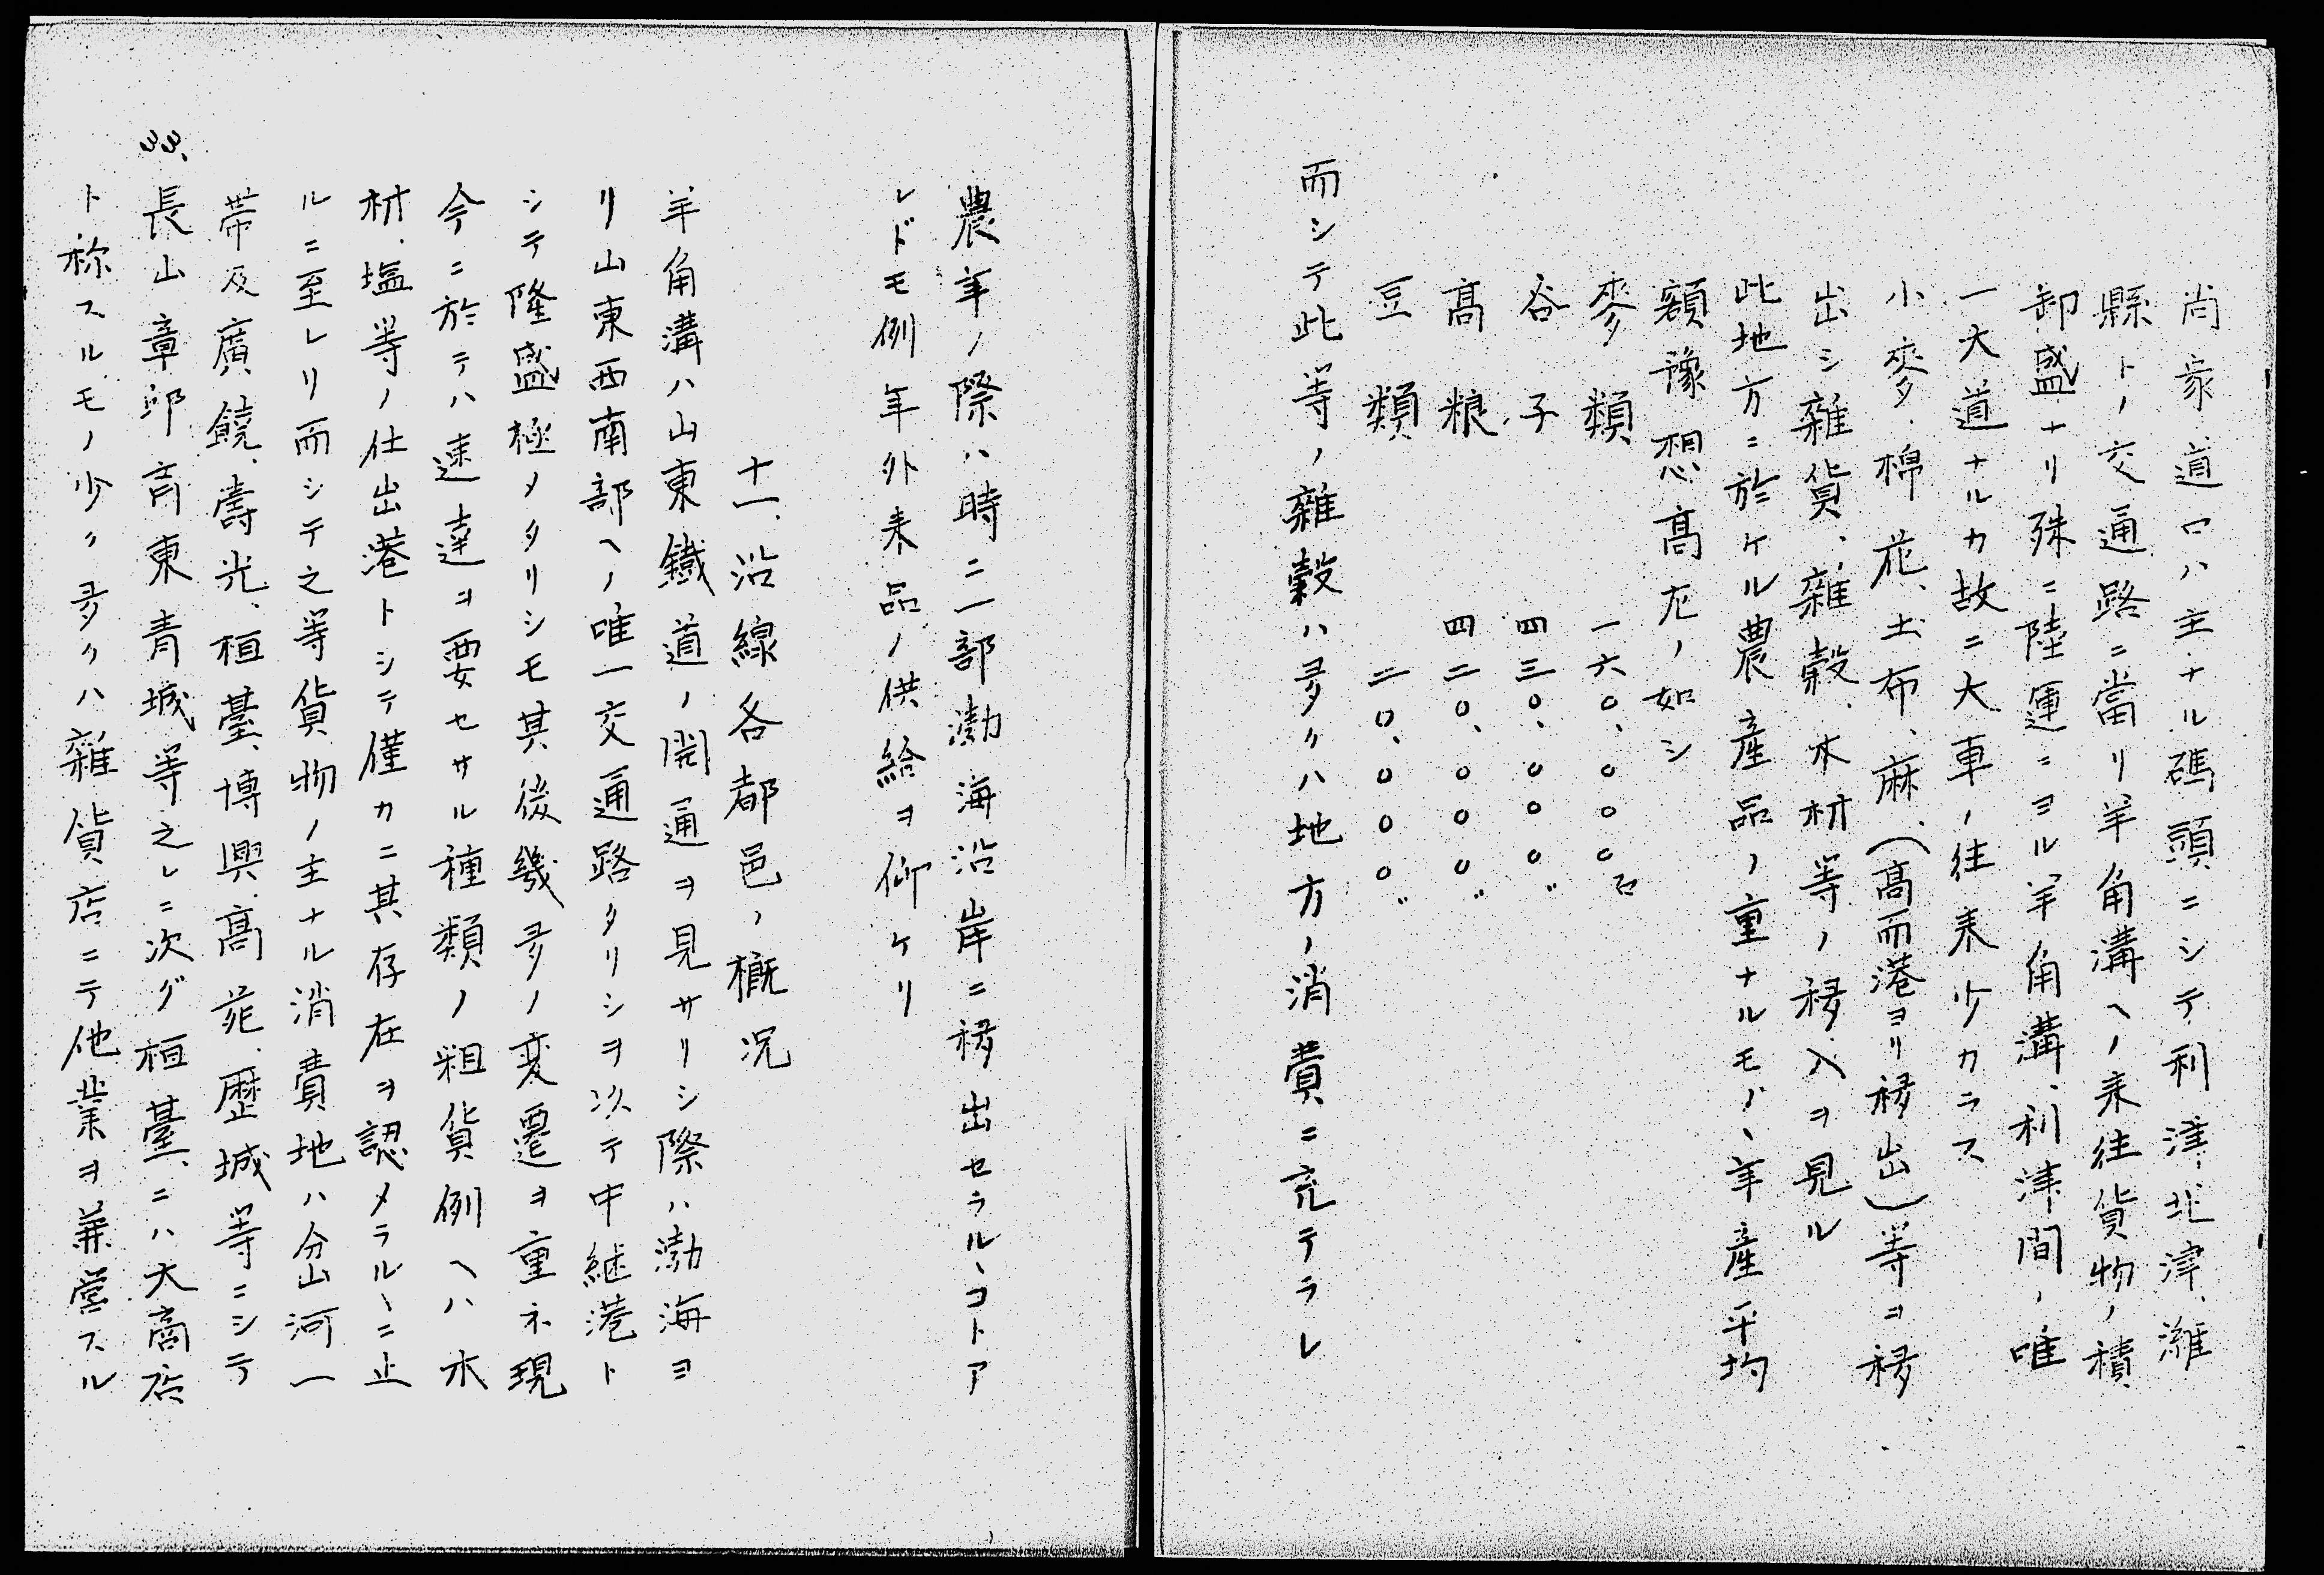 尚衆道口ハ主ナル碼頭ニシテ利津、北津、濰
縣トノ交通路ニ當リ羊角溝ヘノ来往貨物ノ積
卸盛ナリ殊ニ陸運ニヨル羊角溝、利津間ノ唯
一大道ナルカ故ニ大車ノ往来少カラス
小麥、棉花、土布、麻、(高而港ヨリ移出)等ヲ移
出シ雜貨、雜穀、木材等ノ移入ヲ見ル
此地方ニ於ケル農産品ノ重ナルモノヽ年産平均
額豫想高左ノ如シ
麥類 一六〇、〇〇〇石
谷子 四三〇、〇〇〇〃
髙粮 四二〇、〇〇〇〃
豆類 二〇、〇〇〇〃
而シテ此等ノ雜穀ハ多クハ地方ノ消費ニ充テラレ
農羊ノ際ハ時ニ一部渤海沿岸ニ移出セラルヽコトア
レドモ例年外来品ノ供給ヲ仰ケリ
十一、沿線各都邑ノ概況
羊角溝ハ山東鐵道ノ開通ヲ見サリシ際ハ渤海ヨ
リ山東西南部ヘノ唯一交通路タリシヲ以テ中継港ト
シテ隆盛極メタリシモ其後幾多ノ変遷ヲ重ネ現
今ニ於テハ速達ヲ要セサル種類ノ粗貨例ヘハ木
材、塩等ノ仕出港トシテ僅カニ其存在ヲ認メラルヽニ止
ルニ至レリ而シテ之等貨物ノ主ナル消費地ハ分山河一
帯及廣饒、壽光、桓臺、博興、高苑、歴城等ニシテ
長山章邱斉東青城等之レニ次グ桓臺、ニハ大商店
ト称スルモノ少ク多クハ雜貨店ニテ他業ヲ兼営スル
33.